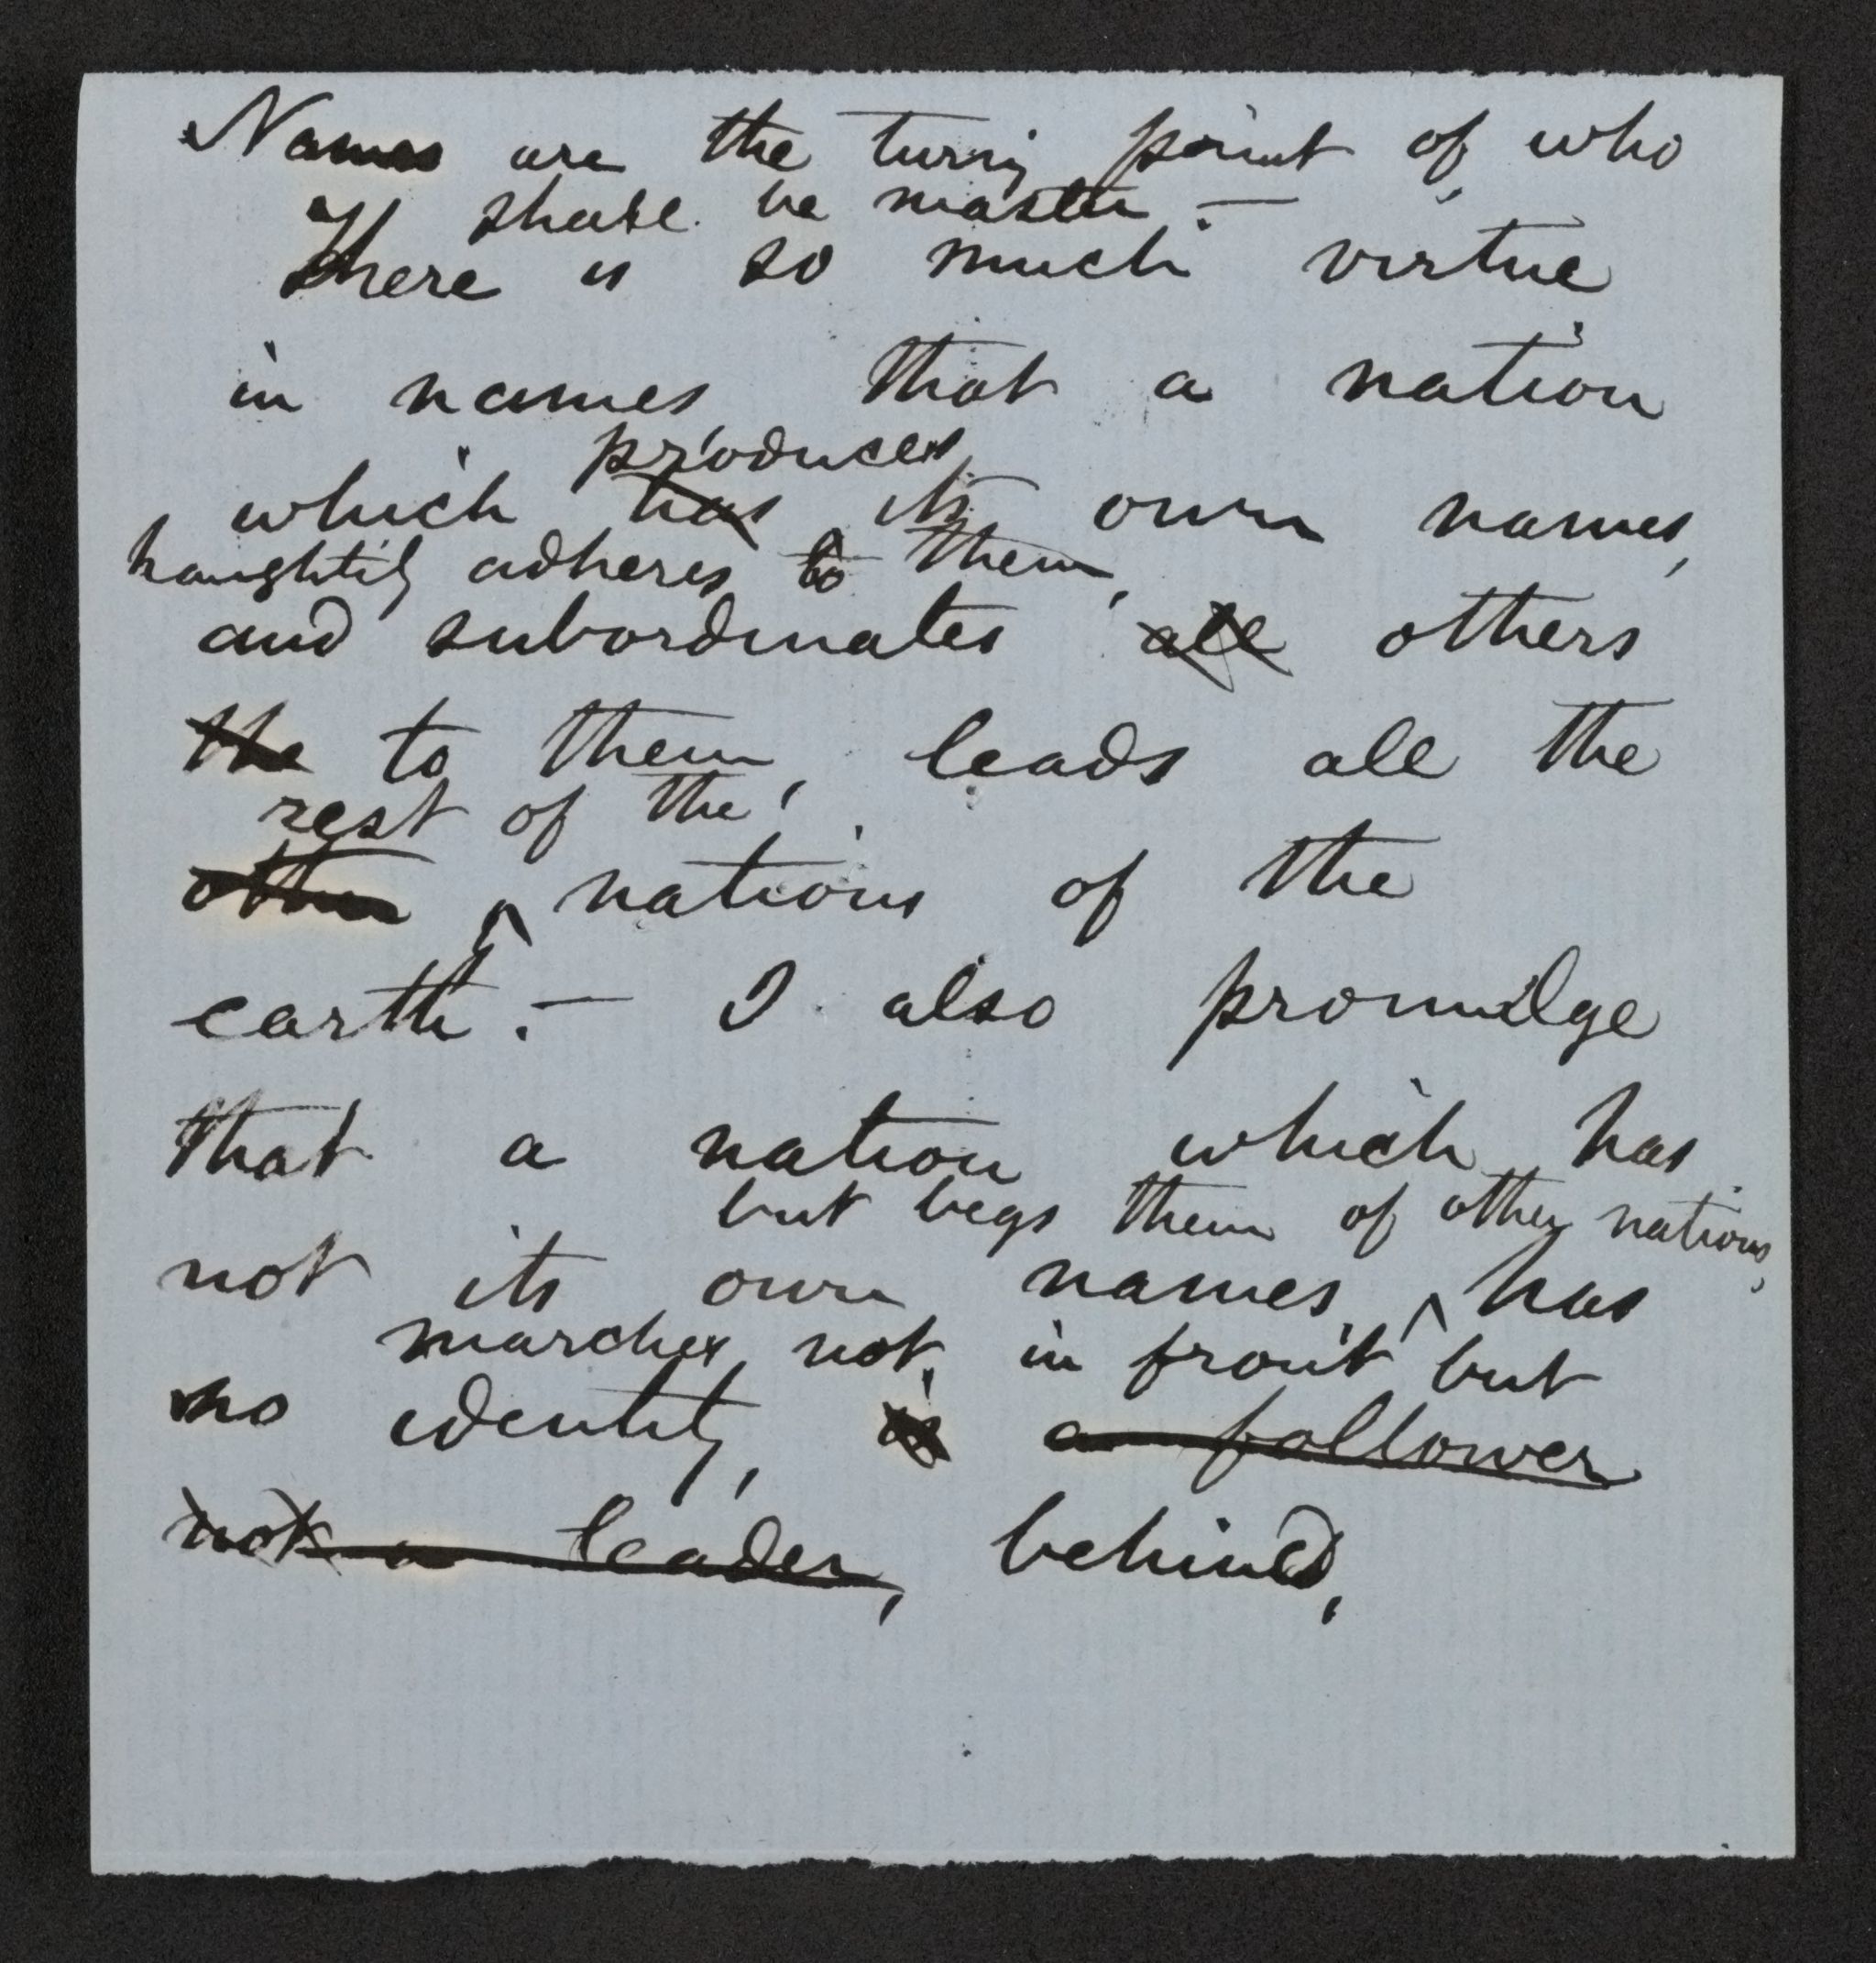 Names are the turnig point of who
shall be master.—
There is so much virtue
in names that a nation
produces
which has its own names,
haughtily adheres to them,
and subordinates all others
the to them, leads all the
rest of the
other ^ nations of the
earth.— I also promulge
that a nation which has
but begs them of other nations,
not its own names, ^ has
marches not in front but
no identity, is a follower
not a leader, behind,